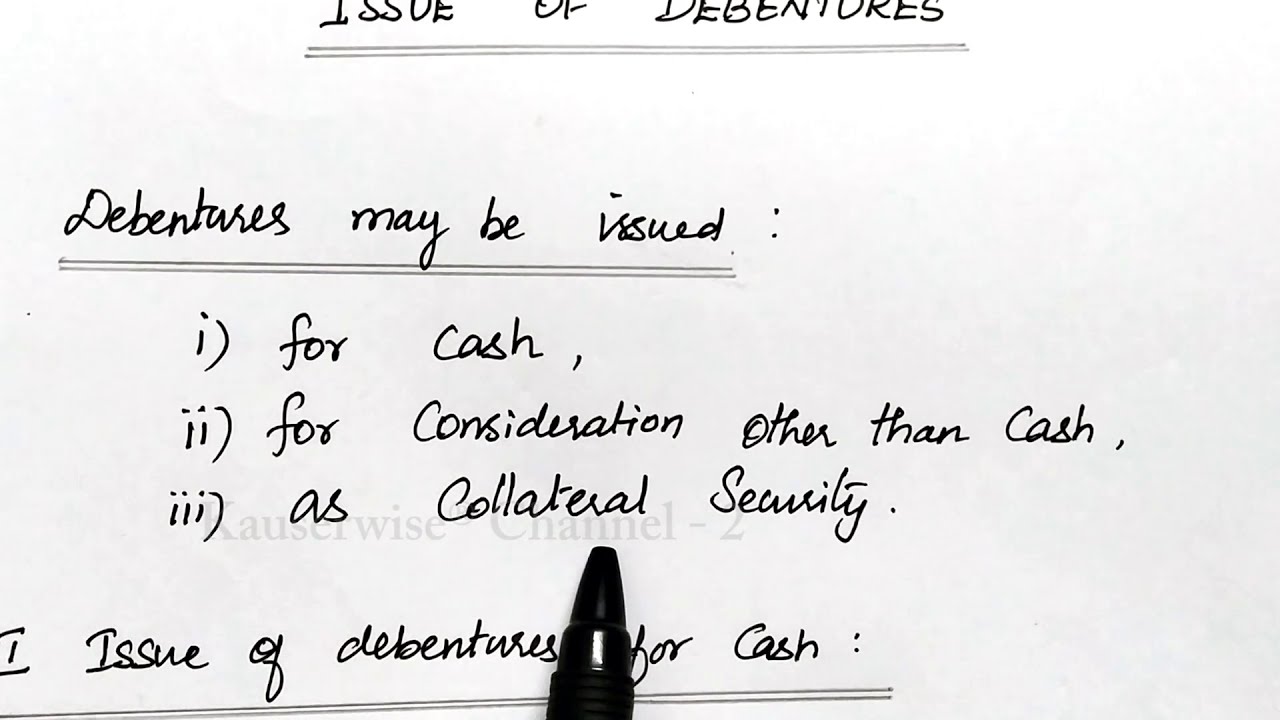 ISSUE OF DEBENTURES
Debentures may be issued :
i) for Cash,
ii) for Consideration other than Cash,
iii) as Collateral Security.
Kauserwise® Channel - 2
I Issue of debentures for Cash :